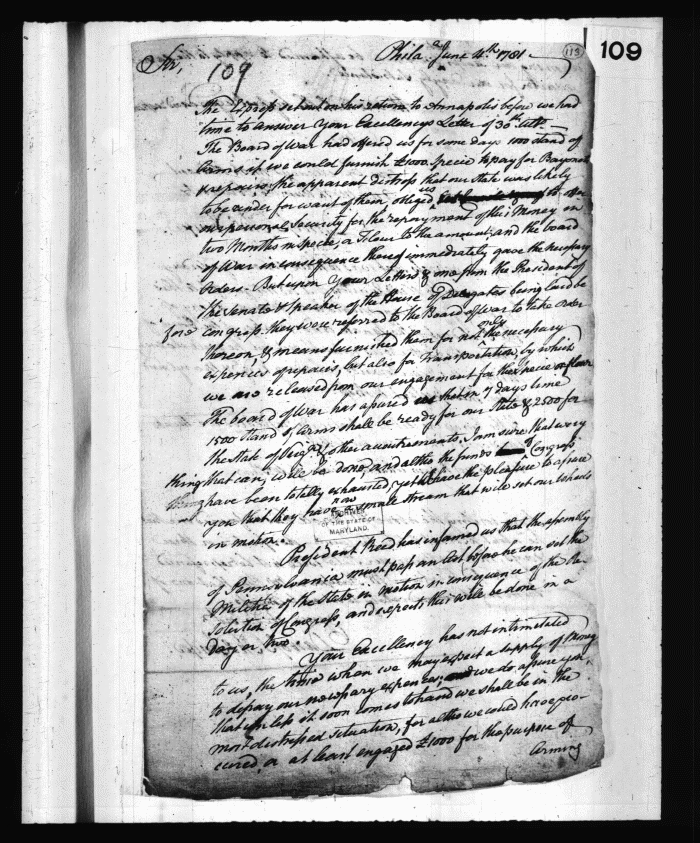 Phila. June 4th. 1781
113
109
Sir,
109
The Express set out on his return to Annapolis before we had
time to answer Your Excellencys Letter of 30th Ulto.
The Board of War had offered us for some days 1000 stand of
Arms if we could furnish £1000 Specie to pay for Bayonets
& repairs, the apparent distress that our State was likely
to be under for want of them, obliged us to
our personal Security for the repayment of this Money in
two Months in specie, or Flour to the amount, and the board
of War in consequence thereof immediately gave the necessary
Orders. But upon Your Letter & one from the President of
the Senate & Speaker of the House of Delegates being laid be
fore Congress they were referred to the Board of War to take order
thereon & means furnished them for not only the necessary
expences of repairs, but also for Transportation, by which
we are released from our engagement for the specie or flour
The board of War has assured us that in 7 days time
1500 stand of Arms shall be ready for our State & 2500 for
the State of Virga. & other accoutrements. I am sure that every
thing that can, will be done, and altho the funds of Congress
have been totally exhausted, yet I have the pleasure to assure
you that they have now a small stream that will set our wheels
in motion.
ARCHIVES
OF THE STATE OF
MARYLAND.
President Reed has informed us that the assembly
of Pennsylvania must pass an Act before he can set the
Militia of the State in motion in consequence of the Re
solution of Congress, and expects this will be done in a
Day or two.
Your Excellency has not intimated
to us, the time when we may expect a supply of Money
to defray our necessary expences, and we do assure you,
that unless it soon comes to hand we shall be in the
most distressed situation, for altho we could have pro
cured, or at least engaged £1000 for the purpose of
Arming